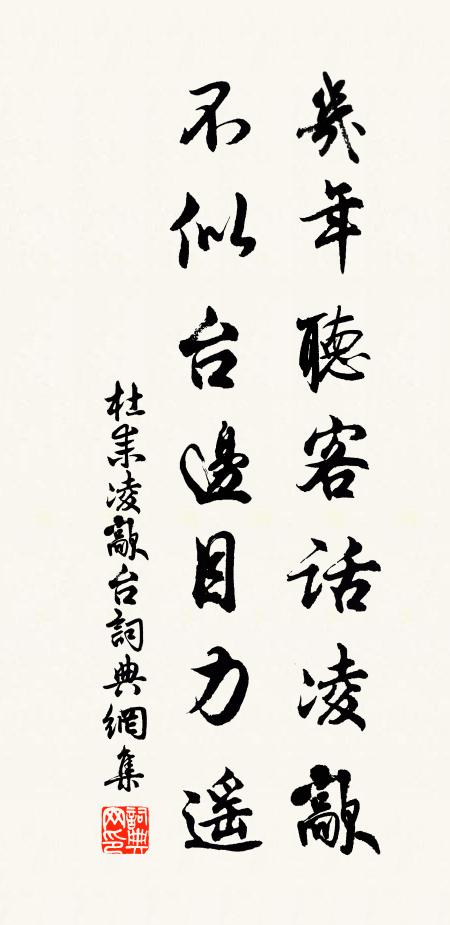 幾年聽客話凌歊
不似台邊目力遥
杜耒凌歊台詞典網集
詞典网印